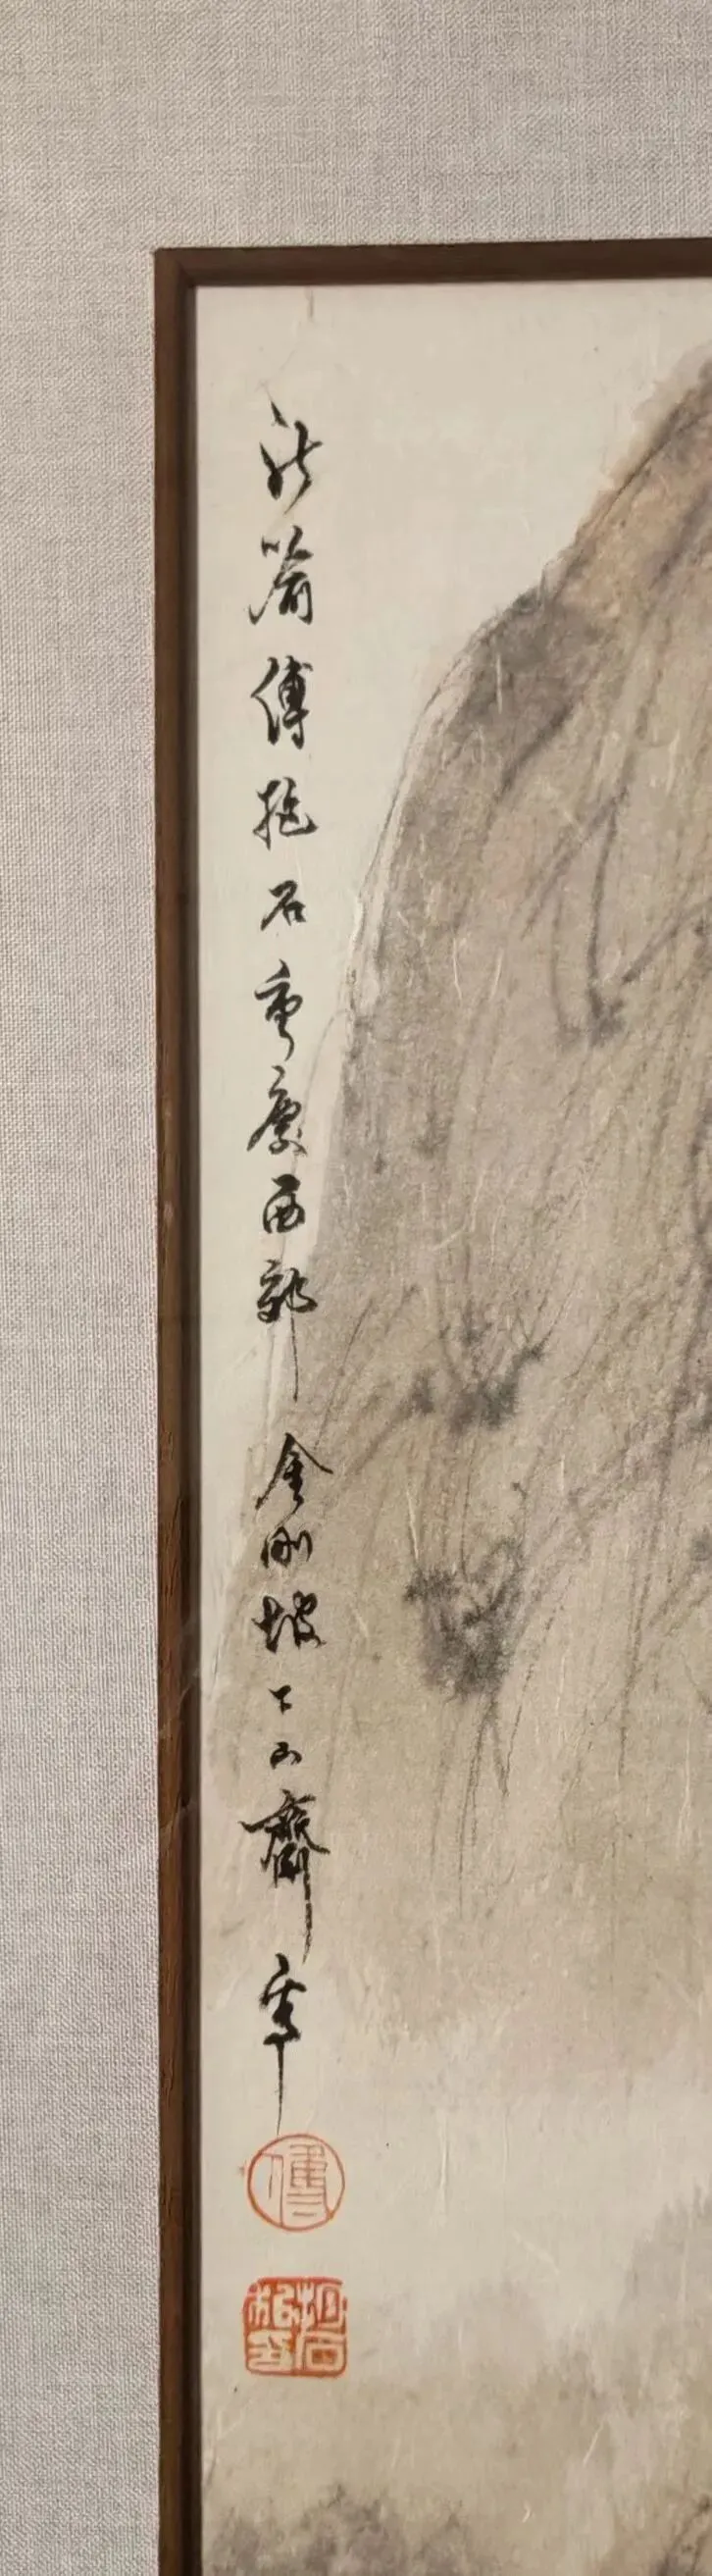 新喻傅抱石重慶西郊金剛坡下山齋寫
傅
抱石